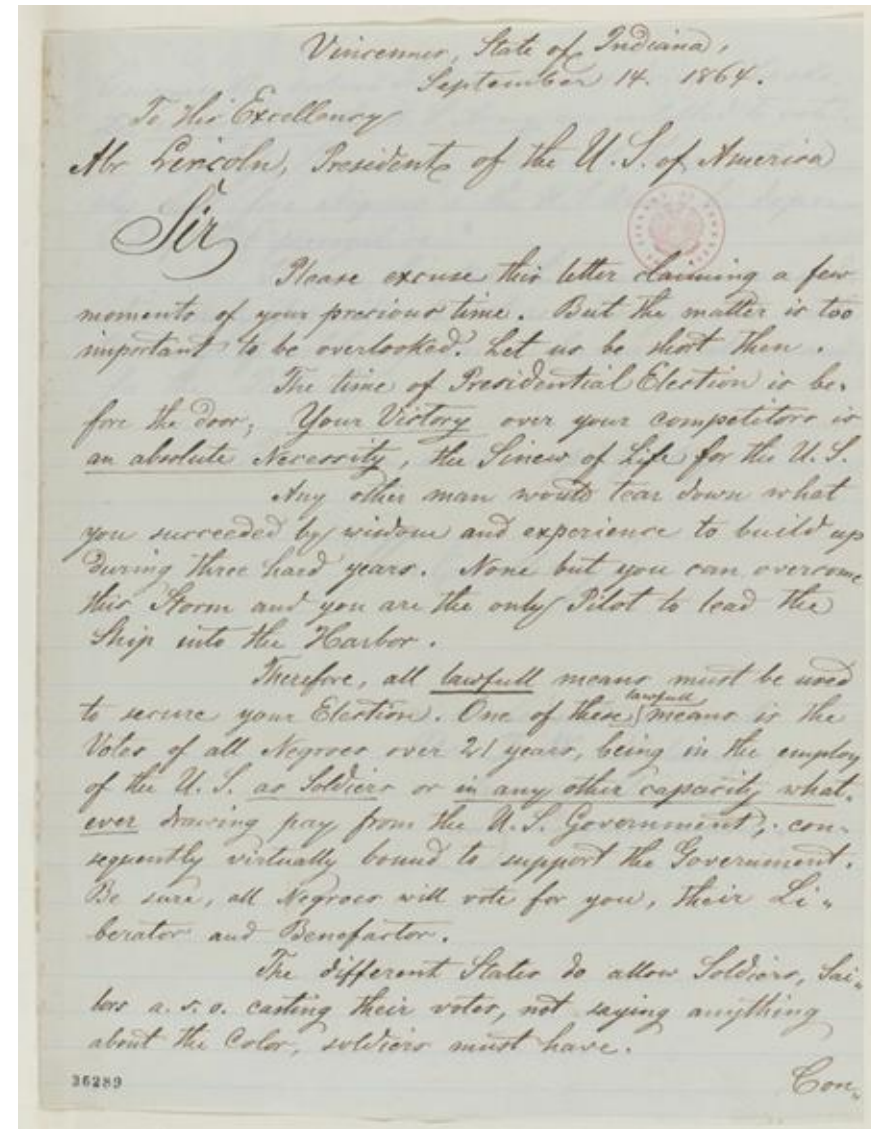 Vincennes, State of Indiana,
September 14. 1864.
To His Excellency
Abr Lincoln, President of the U. S. of America
Sir
Please excuse this letter claiming a few
moments of your precious time. But the matter is too
important to be overlooked. Let us be short then.
The time of Presidential Election is be-
fore the door; Your Victory over your competitors is
an absolute Necessity, the Sinew of Life for the U. S.
Any other man would tear down what
you succeeded by wisdom and experience to build up
during three hard years. None but you can overcome
this Storm and you are the only Pilot to lead the
Ship into the Harbor.
Therefore, all lawfull means must be used
to secure your Election. One of these lawfull means is the
Votes of all Negroes over 21 years, being in the employ
of the U. S. as Soldiers or in any other capacity what-
ever drawing pay from the U. S. Government, con-
sequently virtually bound to support the Government.
Be sure, all Negroes will vote for you, their Li-
berator and Benefactor.
The different States do allow Soldiers, Sai-
lors a. s. o. casting their votes, not saying anything
about the Color, soldiers must have.
36289
Con-